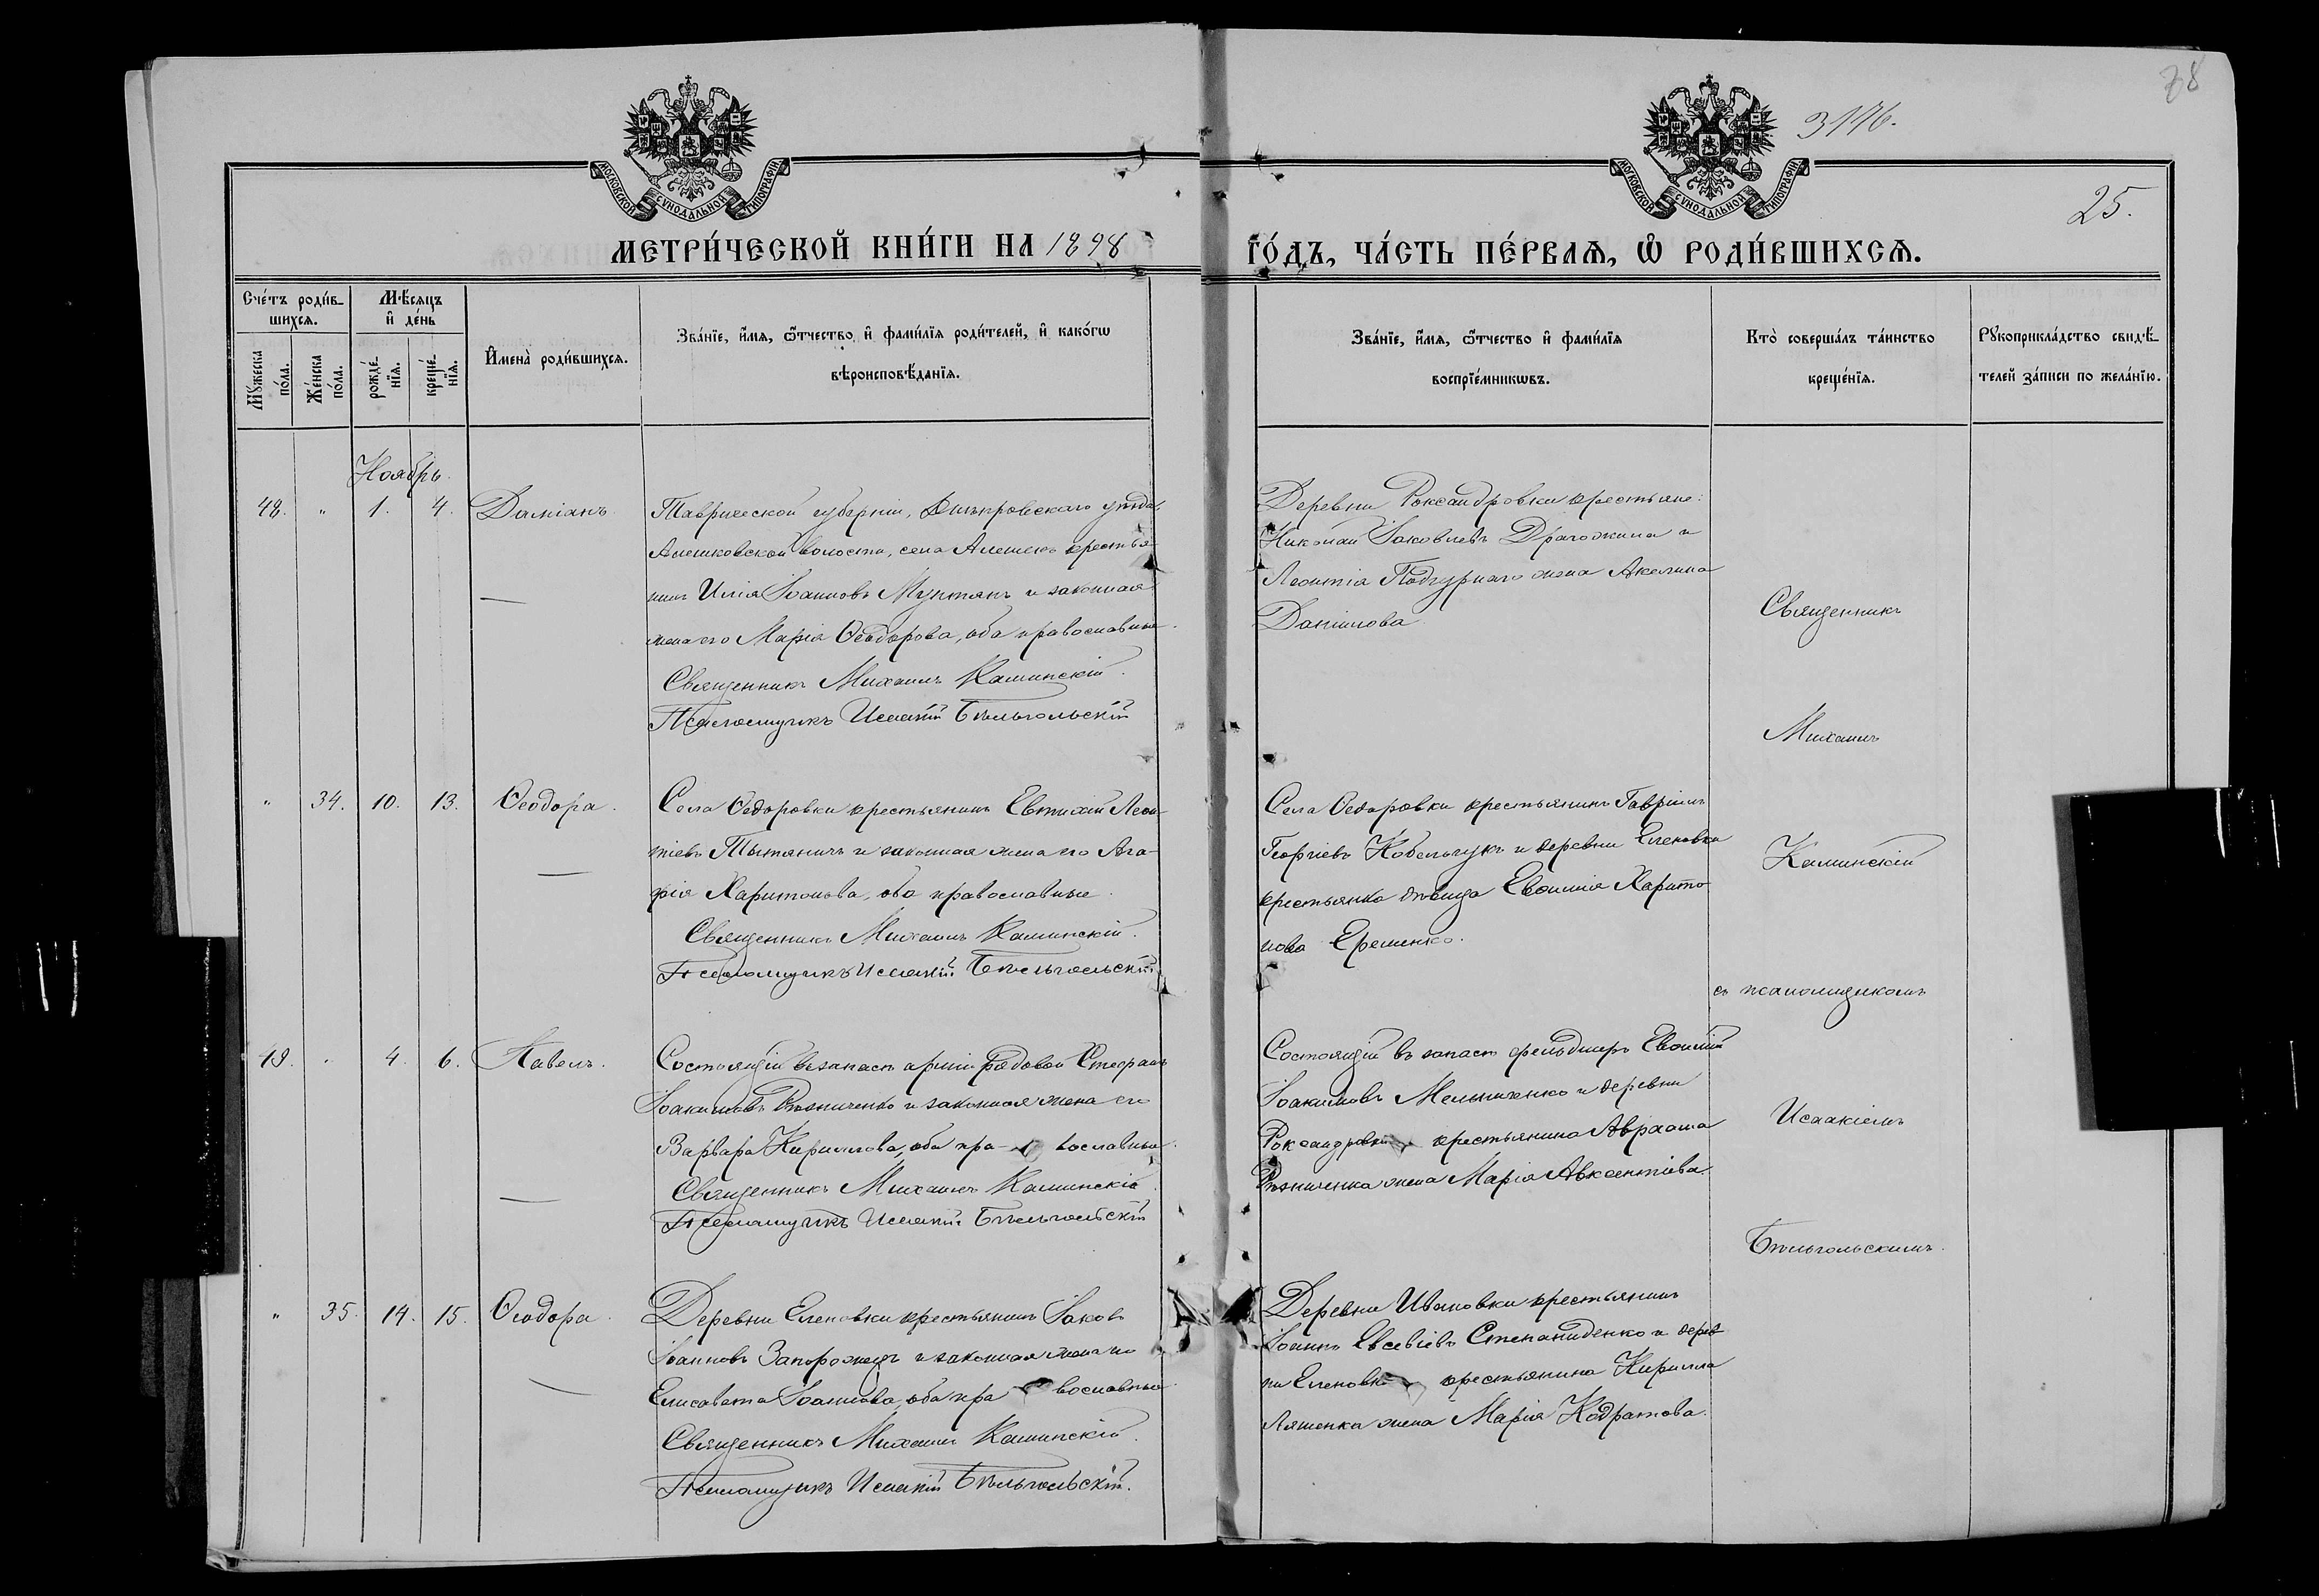 78
3176.
25.
МОСКОВСКОЙ СУНОДАЛЬНОЙ ТИПОГРАФІИ
МОСКОВСКОЙ СУНОДАЛЬНОЙ ТИПОГРАФІИ
МЕТРИ́ЧЕСКОЙ КНИ́ГИ НА 1898
ГО́ДЪ, ЧА́СТЬ ПЕ́РВАѦ, Ѡ҆ РОДИ́ВШИХСѦ.
Сче́тъ роди́в-
шихсѧ.
Мꙋ́жеска по́ла.
Же́нска по́ла.
Мѣ́сѧцъ
и҆ де́нь
рожде́-нїѧ.
креще́-нїѧ.
И҆мена̀ роди́вшихсѧ.
Зва́нїе, и҆́мѧ, ѻ҆́тчество и҆ фами́лїѧ роди́телей, и҆ како́гѡ
вѣроисповѣ́данїѧ.
Зва́нїе, и҆́мѧ, ѻ҆́тчество и҆ фами́лїѧ
воспрїе́мникѡвъ.
Кто̀ соверша́лъ та́инство
креще́нїѧ.
Рꙋкоприкла́дство свидѣ́-
телей за́писи по жела́нїю.
Ноябрь.
48. " 1. 4. Даміанъ.
Таврической губерніи, Днѣпровскаго уѣзда,
Алешковской волости, села Алешекъ крестья-
нинъ Илія Іоанновъ Мунтянъ и законная
жена его Марія Ѳеодорова, оба православные.
Священникъ Михаилъ Каминскій.
Псаломщикъ Исаакій Бѣльгольскій
Деревни Роксандровки крестьяне:
Николай Іаковлевъ Драгожила и
Леонтія Подгурнаго жена Акелина
Даніилова.
" 34. 10. 13. Ѳеодора.
Села Ѳедоровки крестьянинъ Евтихій Леон-
тіевъ Тытяничъ и законная жена его Ага-
фія Харитонова, оба православные.
Священникъ Михаилъ Каминскій.
Псаломщикъ Исаакій Бѣльгольскій
Села Ѳедоровки крестьянинъ Гавріилъ
Георгіевъ Кобельчукъ и деревни Еленовки
крестьянка дѣвица Евѳимія Харито-
нова Еременко.
49. " 4. 6. Павелъ.
Состоящій въ запасѣ арміи рядовой Стефанъ
Іоакимовъ Рѣзниченко и законная жена его
Варвара Кириллова, оба пра- вославные.
Священникъ Михаилъ Каминскій
Псаломщикъ Исаакій Бѣльгольскій
Состоящій въ запасѣ фельдшеръ Евѳимій
Іоакимовъ Мельниченко и деревни
Роксандровки крестьянина Авраама
Рѣзниченка жена Марія Авксентіева.
" 35. 14. 15. Ѳеодора.
Деревни Еленовки крестьянинъ Іаковъ
Іоанновъ Запорожецъ и законная жена его
Елисавета Іоаннова, оба пра вославные.
Священникъ Михаилъ Каминскій.
Псаломщикъ Исаакій Бѣльгольскій.
Деревни Ивановки крестьянинъ
Іоаннъ Евсевіевъ Степаниденко и дерев-
ни Еленовки крестьянина Кирилла
Ляшенка жена Марія Кодратова.
Священникъ
Михаилъ
Каминскій
съ псаломщикомъ
Исаакіемъ
Бѣльгольскимъ.